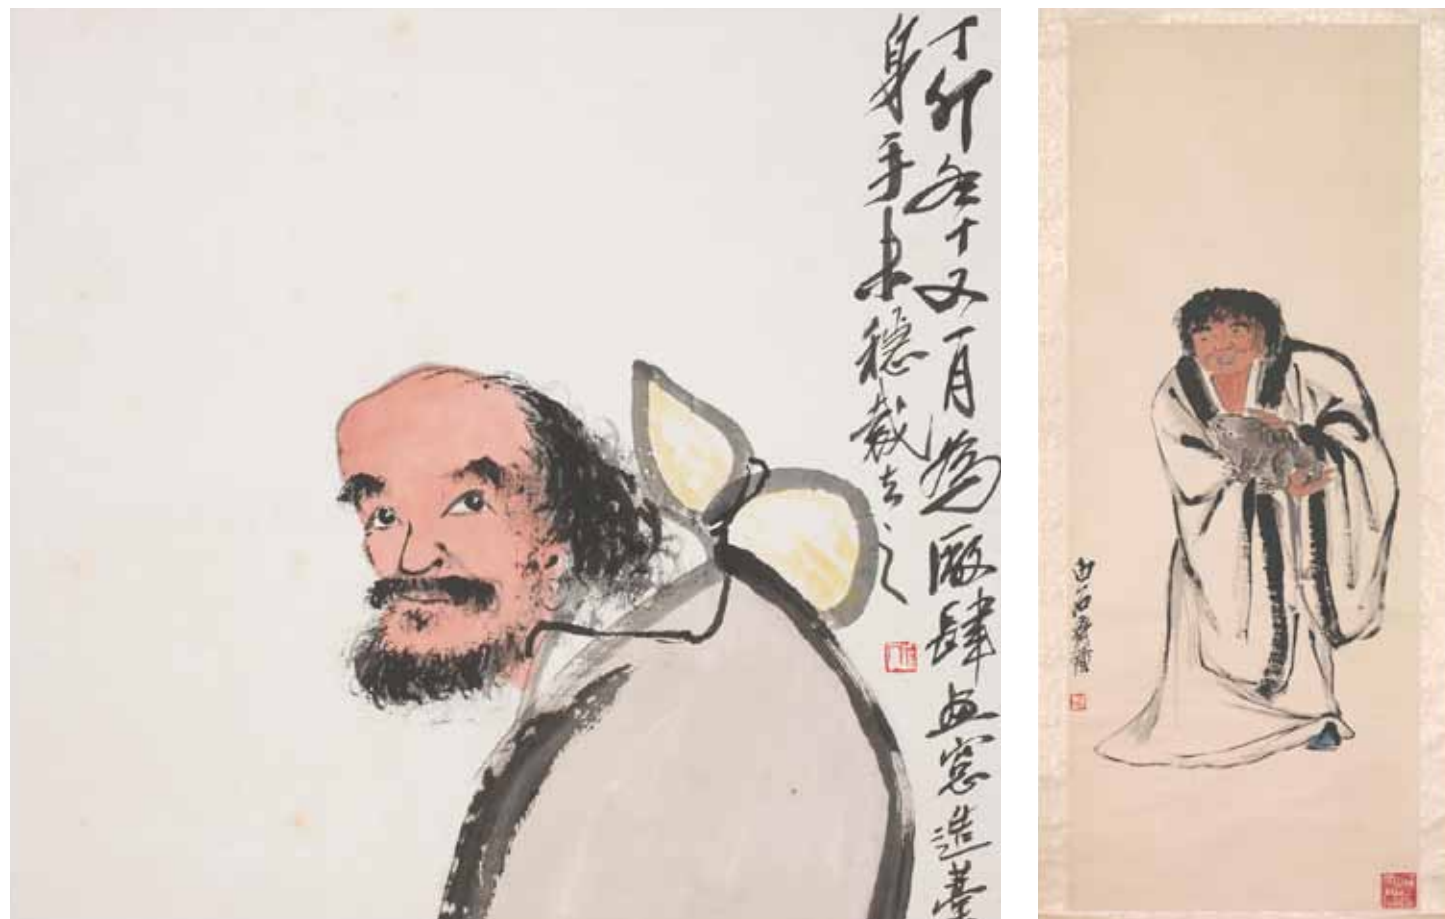 丁卯冬十又一月為廠肆畫窓造藁
身手未穩裁去之
白石齊璜